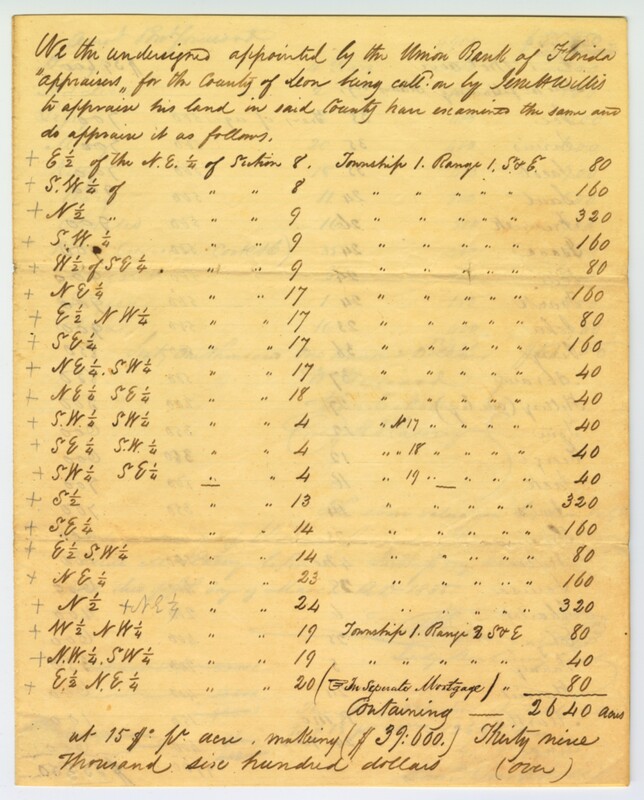 We the undersigned appointed by the Union Bank of Florida
"appraisers" for the County of Leon being call'd on by Willis
to appraise his land in said County have examined the same and
do appraise it as follows.
+ E ½ of the N.E. ¼ of Section 8. Township 1. Range 1, S & E. 80
+ S.W ¼ of " " 8 " " " " " 160
+ N ½ " " " 9 " " " " " 320
+ S.W. ¼ " " 9 " " " " " 160
+ W ½ of S E ¼ . " " 9 " " " " " 80
+ N E ¼ " " 17 " " " " " 160
+ E ½ N W ¼ " " 17 " " " " " 80
+ S E ¼ " " 17 " " " " " 160
+ N E ¼ . S W ¼ " " 17 " " " " " 40
+ N E ¼ S E ¼ " " 18 " " " " " 40
+ S.W. ¼ S W ¼ " " 4 " No 17 " " 40
+ S E ¼ S.W. ¼ " " 4 " " 18 " " 40
+ S W ¼ S E ¼ " " 4 " 19 " " 40
+ S ½ " " 13 " " " " " 320
+ S.E ¼ " " 14 " " " " " 160
+ E ½ S.W ¼ " " 14 " " " " " 80
+ N E ¼ " " 23 " " " " " 160
+ N ½ + N E ¼ " " 24 " " " " " 320
+ W ½ N W ¼ " " 19 Township 1. Range 2 S & E 80
+ N.W. ¼ . S W ¼ " " 19 " " " " " 40
+ E. ½ N.E. ¼ " " 20 (☞ In Seperate Mortgage) " 80
Containing — 2640 acres
at 15 $ pr acre. making ($39.600.) Thirty nine
Thousand six hundred dollars (over)